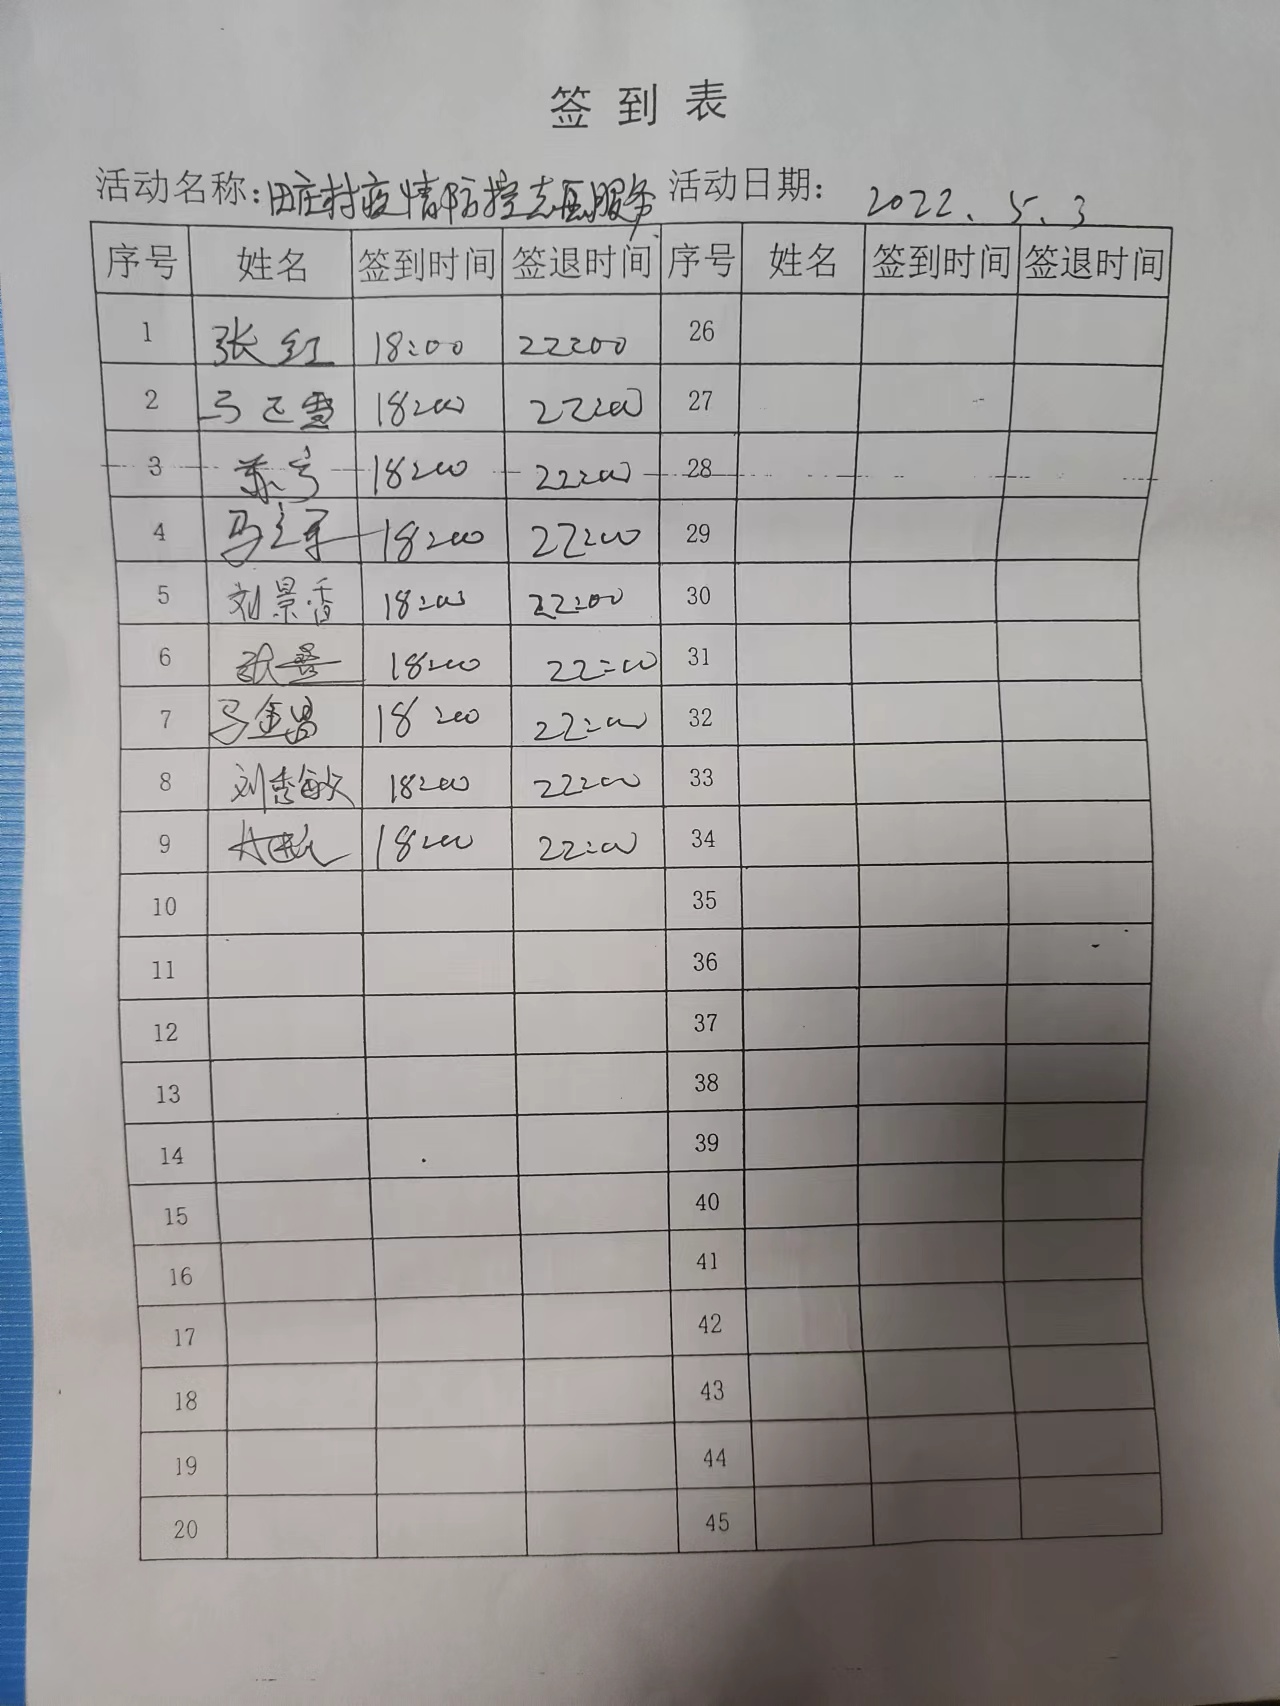 签到表
活动名称:田庄村疫情防控志愿服务 活动日期: 2022.5.3
序号 姓名 签到时间 签退时间 序号 姓名 签到时间 签退时间
1 张红 18:00 22:00 26
2 马 雪 18:00 22:00 27
3 18:00 22:00 28
4 马 18:00 22:00 29
5 刘景香 18:00 22:00 30
6 18:00 22:00 31
7 马金 18:00 22:00 32
8 刘秀敏 18:00 22:00 33
9 18:00 22:00 34
10 35
11 36
12 37
13 38
14 39
15 40
16 41
17 42
18 43
19 44
20 45